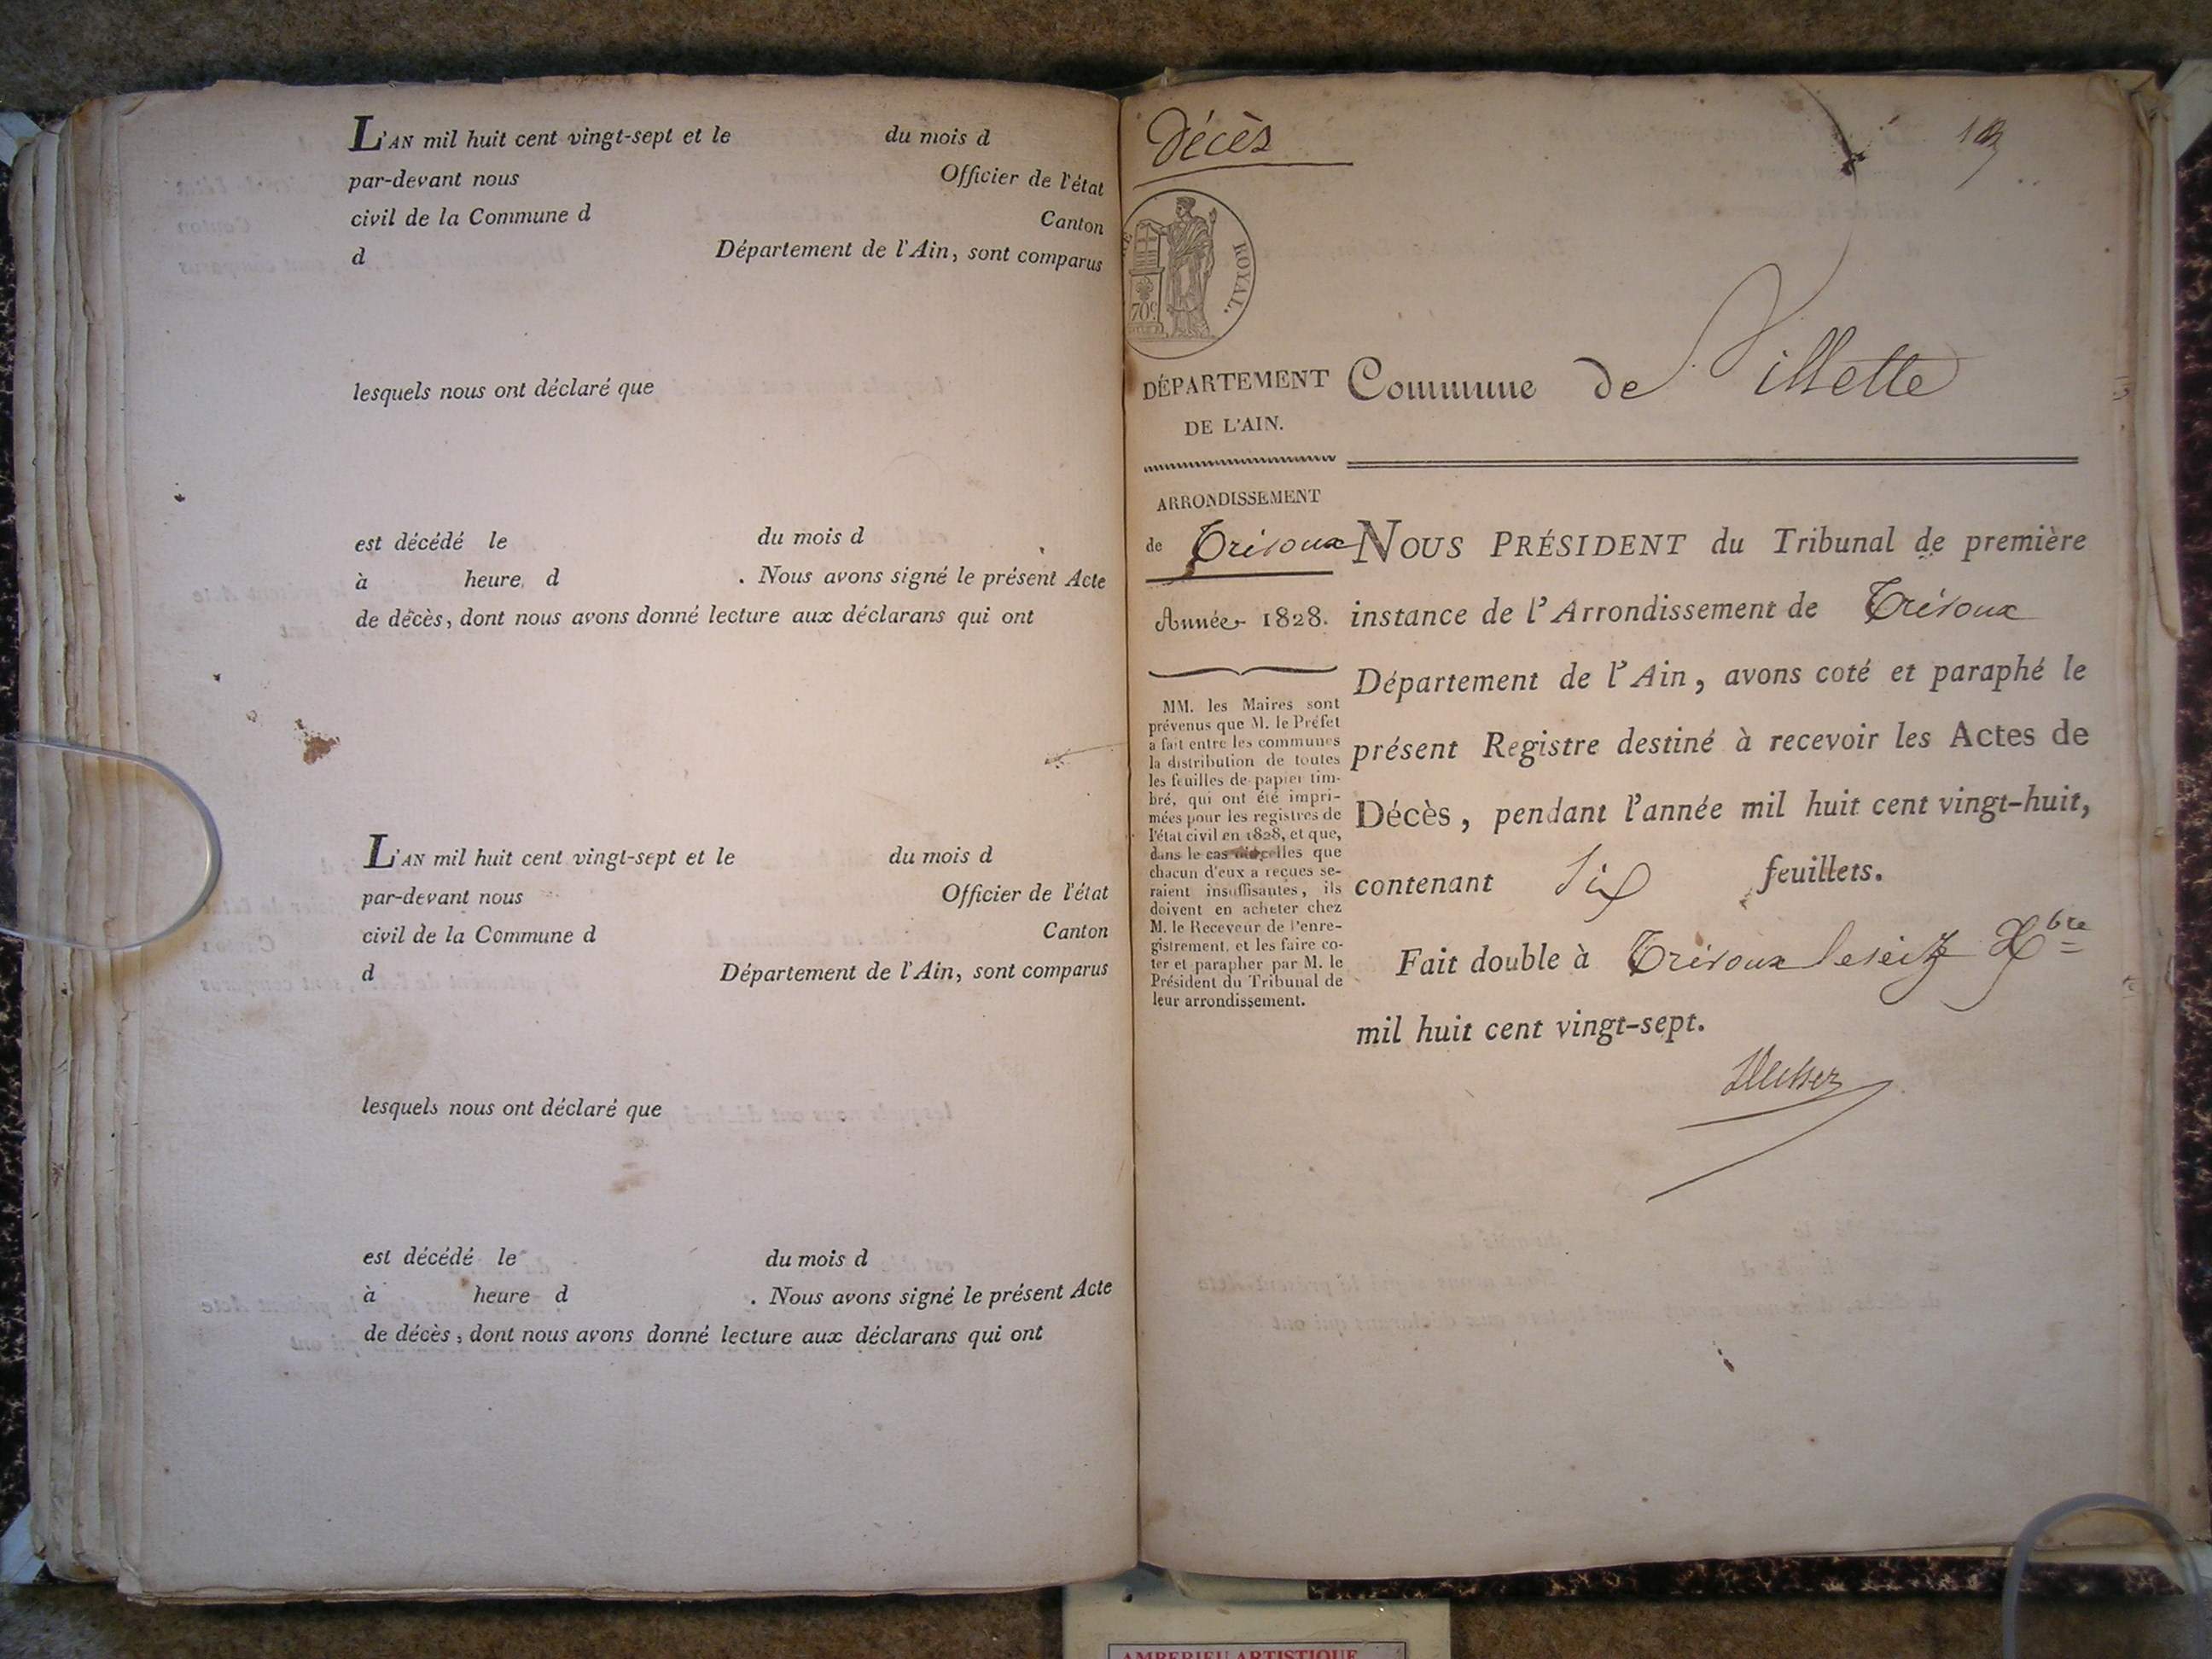 L'AN mil huit cent vingt-sept et le du mois d
par-devant nous Officier de l'état
civil de la Commune d Canton
d Département de l'Ain, sont comparus
lesquels nous ont déclaré que
est décédé le du mois d
à heure d . Nous avons signé le présent Acte
de décès, dont nous avons donné lecture aux déclarans qui ont
L'AN mil huit cent vingt-sept et le du mois d
par-devant nous Officier de l'état
civil de la Commune d Canton
d Département de l'Ain, sont comparus
lesquels nous ont déclaré que
est décédé le du mois d
à heure d . Nous avons signé le présent Acte
de décès, dont nous avons donné lecture aux déclarans qui ont
Décès
ROYAL.
70c
DÉPARTEMENT
DE L'AIN.
Commune de Villette
ARRONDISSEMENT
de Trévoux
Année 1828.
MM. les Maires sont
prévenus que M. le Préfet
a fait entre les communes
la distribution de toutes
les feuilles de papier tim-
bré, qui ont été impri-
mées pour les registres de
l'état civil en 1828, et que,
dans le cas où celles que
chacun d'eux a reçues se-
raient insuffisantes, ils
doivent en acheter chez
M. le Receveur de l'enre-
gistrement, et les faire co-
ter et parapher par M. le
Président du Tribunal de
leur arrondissement.
NOUS PRÉSIDENT du Tribunal de première
instance de l'Arrondissement de Trévoux
Département de l'Ain, avons coté et paraphé le
présent Registre destiné à recevoir les Actes de
Décès, pendant l'année mil huit cent vingt-huit,
contenant six feuillets.
Fait double à Trévoux le seize Xbre
mil huit cent vingt-sept.
AMBERIEU ARTISTIQUE